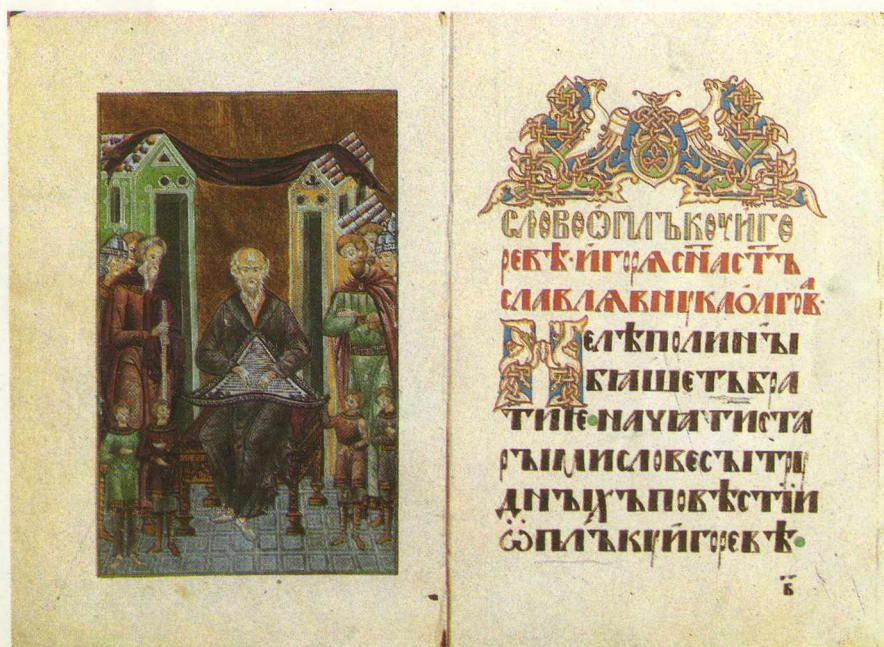 СЛОВО Ѿ ПЛЪКОЧИГО
РЕВѢ· ИГОРѦ СН҃А СТ҃Ъ
СЛАВЛѦ ВНꙊКА ОЛГОВА·
НЕ ЛѢПО ЛИ НЫ
БѦШЕТЪ БРА
ТИѤ· НАЧѦТИ СТА
РЫМИ СЛОВЕСЫ ТРꙊ
ДНЫХЪ ПОВѢСТІЙ
Ѿ ПЛЪКꙊ ИГОРЕВѢ·
в҃